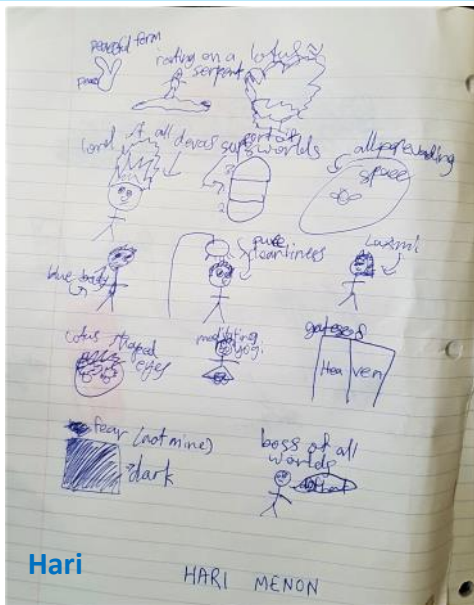 peaceful form
peace
resting on a
serpent
lotus
lord of all devas
supports
worlds
3
2
all pervading
space
blue body
pure
cleanliness
Laxmi
lotus shaped
eyes
meditating
yogi
Hea ven
fear (not mine)
dark
boss of all
worlds
Hari
HARI MENON